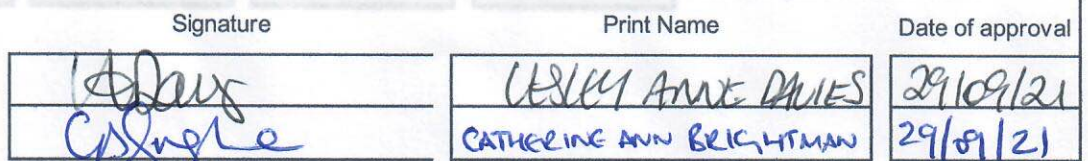 Signature Print Name Date of approval
LADavies LESLEY ANNE DAVIES 29/09/21
CATHERINE ANN BRIGHTMAN 29/09/21